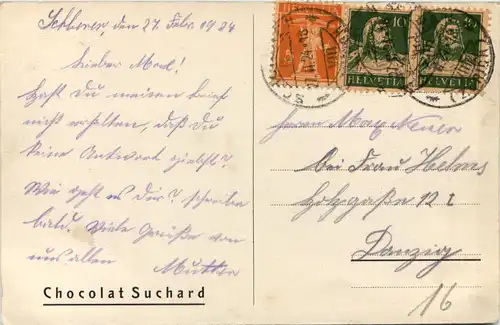 den 27. Febr. 1924
Lieber Max!
Hast Du meinen Brief
nicht erhalten, daß du
keine Antwort giebst?
Wie geht es Dir? schreibe
bald. Viele Grüße von
uns allen Mutter
Chocolat Suchard
HELVETIA
10
HELVETIA
10
Herrn Max
bei Frau Helms
Holzgasse 12 I
Danzig
16